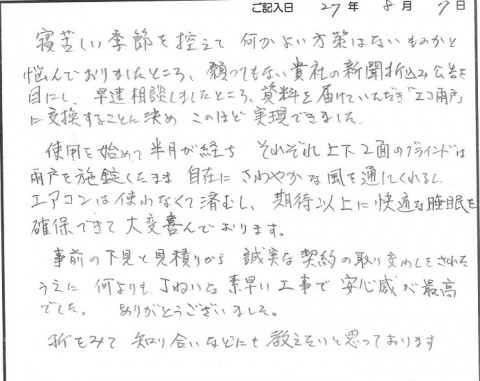 ご記入日 27年 8月 7日
寝苦しい季節を控えて 何かよい方策はないものかと
悩んでおりましたところ、願ってもない貴社の新聞折込み広告を
目にし、早速相談しましたところ、資料を届けていただき「エコ雨戸」
に交換することに決め このほど実現できました。
使用を始めて半月が経ち それぞれ上下2面のブラインドは
雨戸を施錠したまま 自在に さわやかな風を通してくれるし
エアコンは使わなくて済むし、期待以上に快適な睡眠を
確保できて大変喜んでおります。
事前の下見と見積りから 誠実な契約の取り交わしをされた
うえに 何よりも ていねいな 素早い工事で 安心感が最高
でした。 ありがとうございました。
折をみて 知り合いなどにも 教えたいと思っております